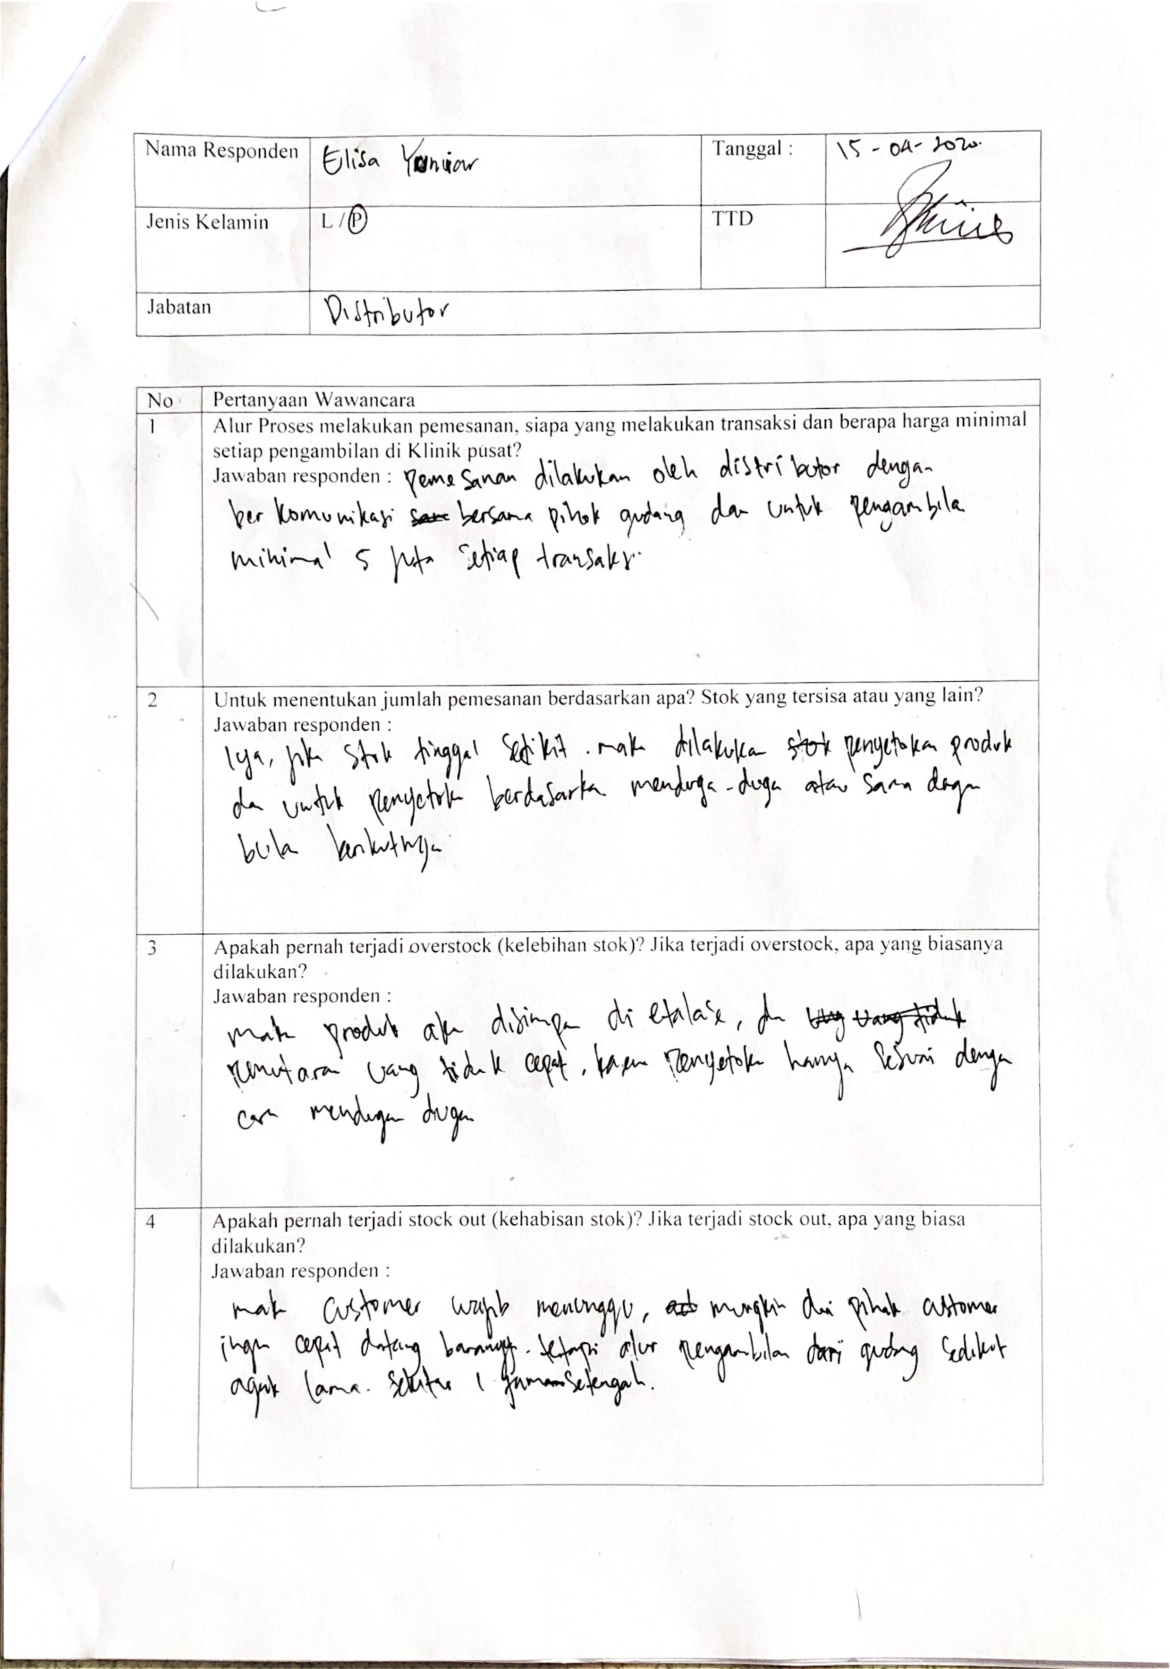 Nama Responden Elisa Yaniar Tanggal : 15-04-2020
Jenis Kelamin L / P TTD
Jabatan Distributor
No Pertanyaan Wawancara
1 Alur Proses melakukan pemesanan, siapa yang melakukan transaksi dan berapa harga minimal
setiap pengambilan di Klinik pusat?
Jawaban responden : pemesanan dilakukan oleh distributor dengan
berkomunikasi bersama pihak gudang dan untuk pengambila
minimal 5 juta setiap transaksi.
2 Untuk menentukan jumlah pemesanan berdasarkan apa? Stok yang tersisa atau yang lain?
Jawaban responden :
Iya, jika stok tinggal sedikit. mak dilakuka stok penyetokan produk
da untuk penyetok berdasarka menduga-duga atau sama denga
bula berikutnya
3 Apakah pernah terjadi overstock (kelebihan stok)? Jika terjadi overstock, apa yang biasanya
dilakukan?
Jawaban responden :
mak produk aka disimpa di etalase, da uang tiduk
pemutaran uang tidak cepat, karena penyetoka hanya sesuai denga
cara mendugan dugan
4 Apakah pernah terjadi stock out (kehabisan stok)? Jika terjadi stock out, apa yang biasa
dilakukan?
Jawaban responden :
mak customer wajib menunggu, mungkin dari pihak customer
ingin cepat datang barangny. tetapi alur pengambilan dari gudang sedikit
agak lama. sekitar 1 jaman setengah.